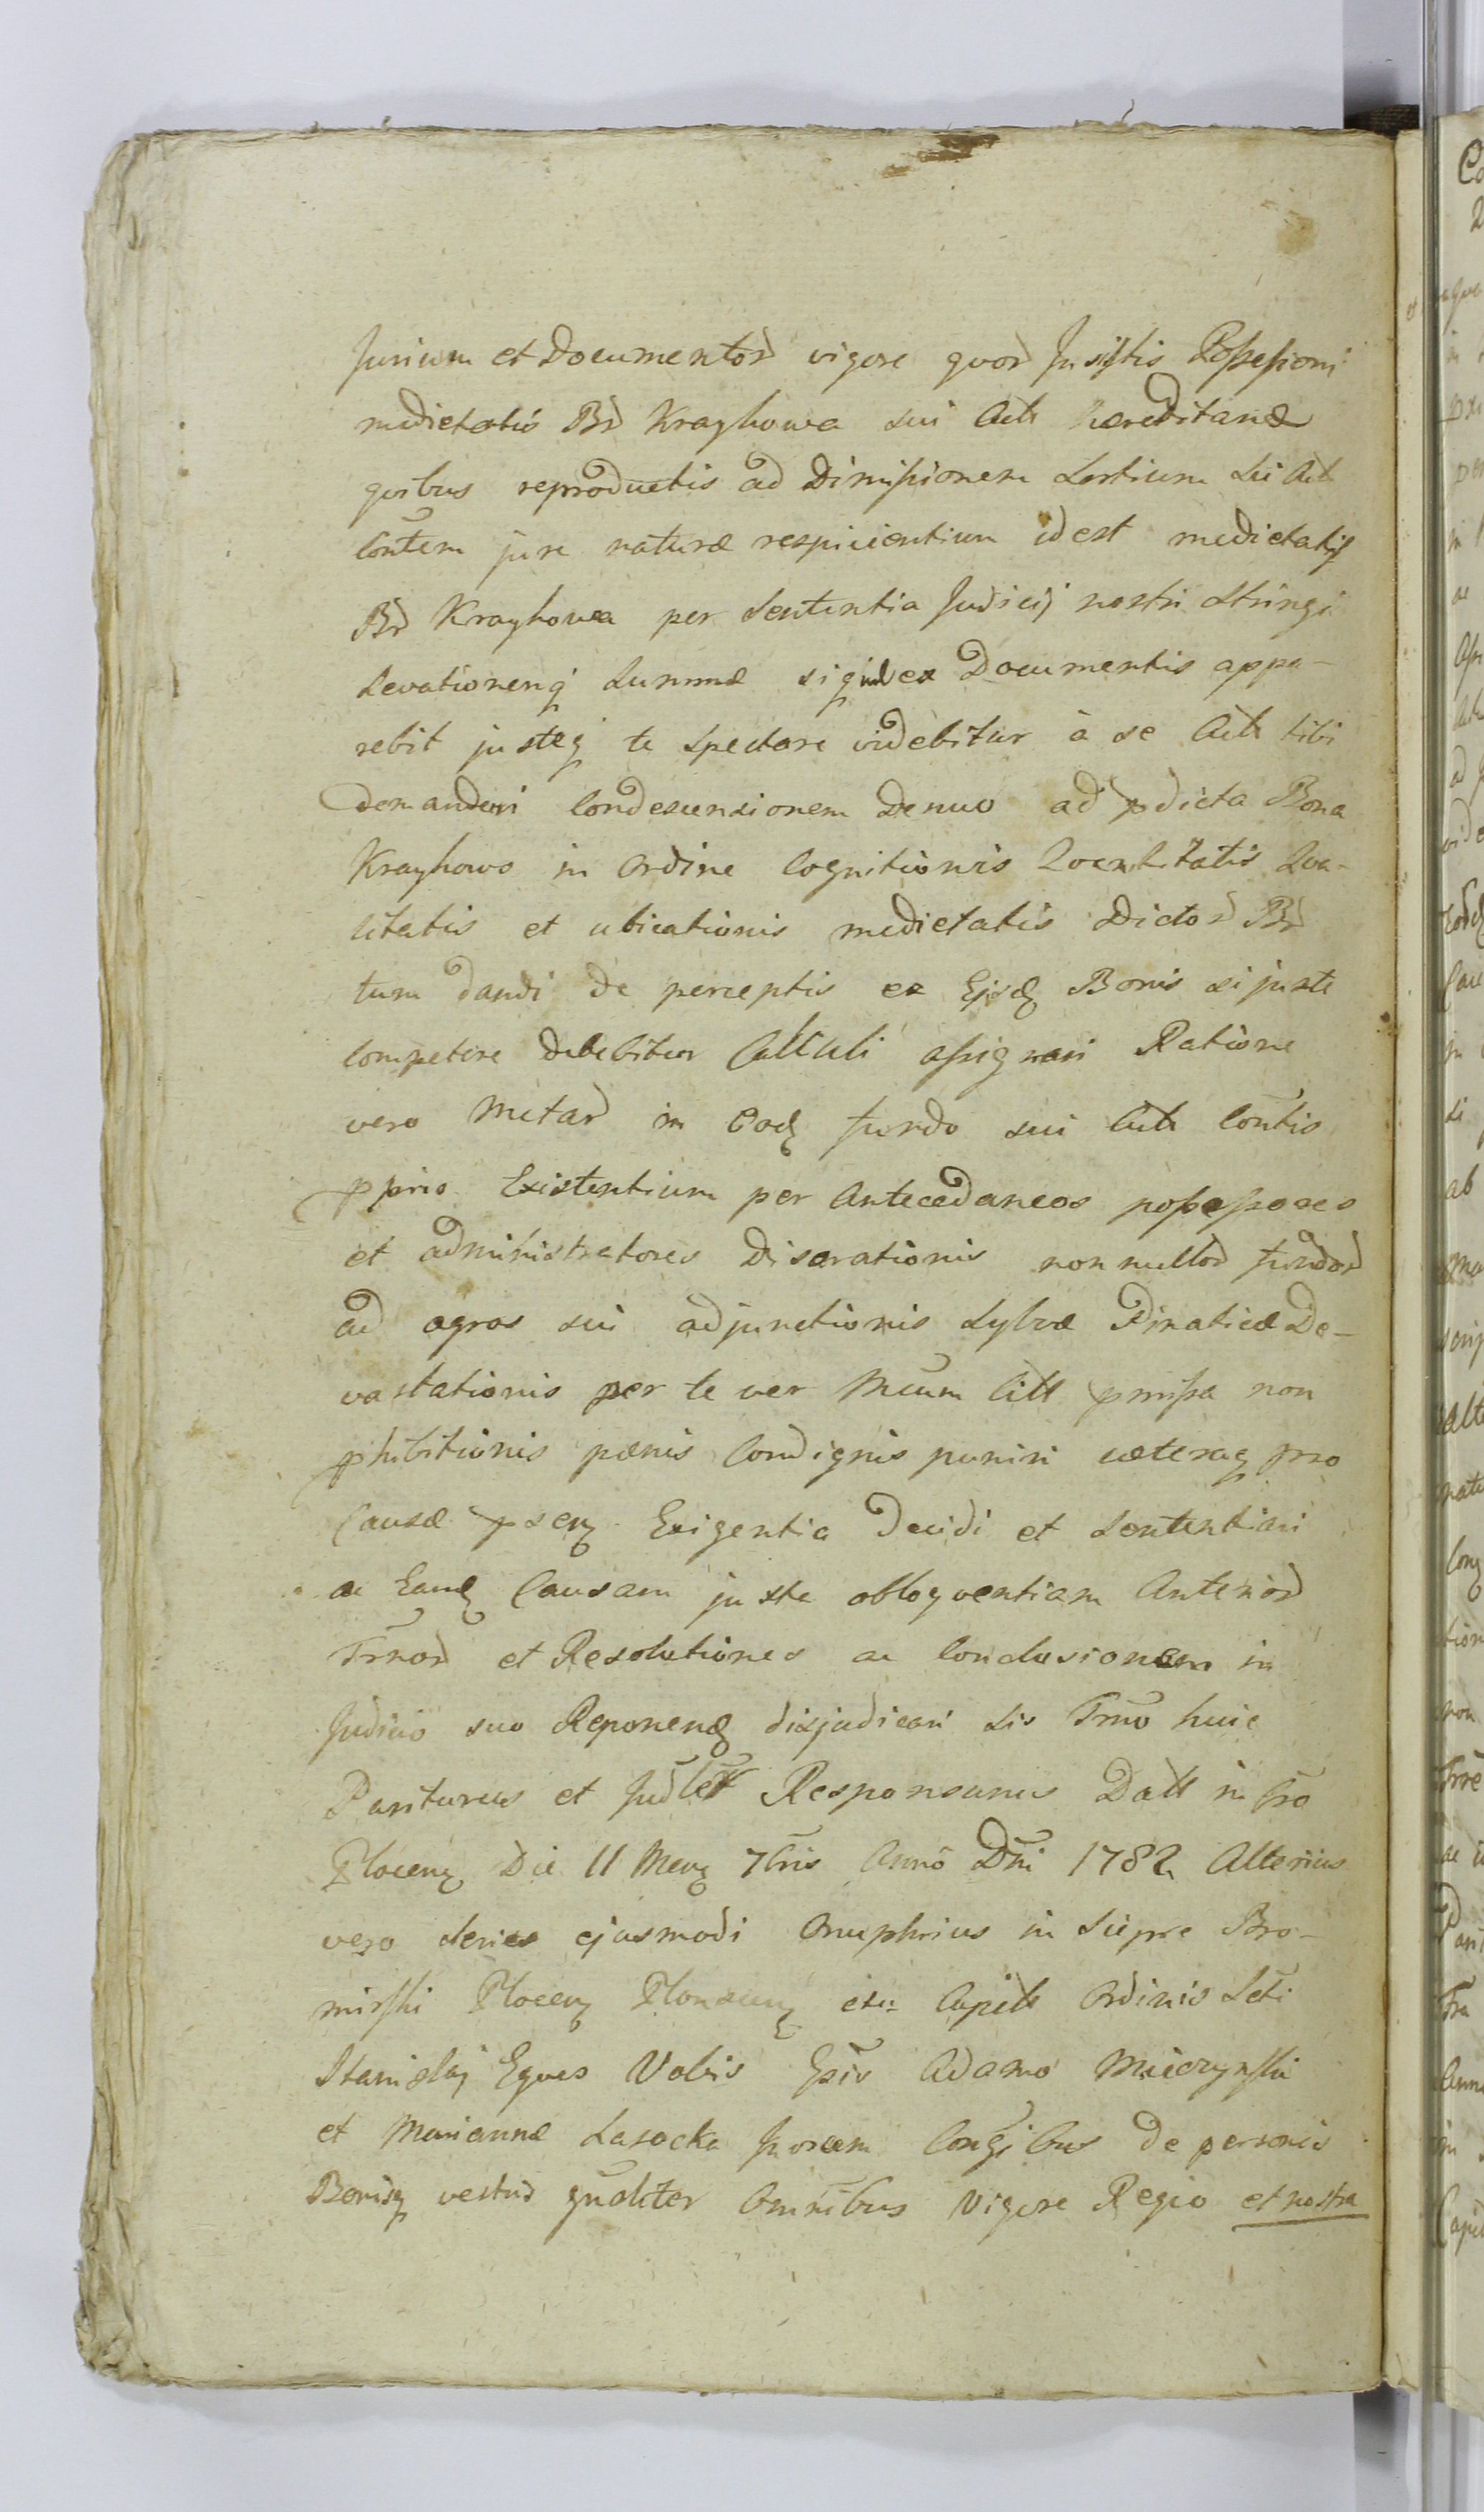 Jurium et Documentor vigore quor Insistis Possessioni
medietatis Br Krayhowa sui Actt haereditariae
quibus reproductis ad Dimissionem Sortium sui Actt
Contem jure naturae respicientium id est medietatis
Br Krayhowa per Sententia Judicij nostri Stringi
Levationemq Summae siquid ex Documentis appa-
rebit justeq te spectare videbitur à se Actt tibi
demandari Condescensionem Denuo ad pdicta Bona
Krayhowo in Ordine Cognitionis Quantitatis Qua-
litatis et ubicationis medietatis Dictor Br
tum dandi de perceptis ex Ejsd Bonis si juste
Competere debebitur Calculi assignari Ratione
vero Metar in Eod fundo sui Actt Contis
pprio Existentium per Antecedaneos possessores
et administratores Disarationis nonnullor fundor
ad agros sui adjunctionis Sylvae Pinaticae De-
vastationis per te ver Mcum Citt pmissa non
phibitionis paenis Condignis puniri caeteraq pro
Causae pseng Exigentia Decidi et Sententiari
ac Eand Causam juxta obloquentiam Anterior
Trnor et Resolutiones ac Conclusionem in
Judicio suo Reponend disjudicari sis Trno huic
Pariturus et Judltr Responsurus Datt in Cro
Plocens Die 11 Mens 7bris Anno Dni 1782 Alterius
vero Series ejusmodi Onuphrius in Siepre Bro-
mirski Plocens Plonscens etc Capitt Ordinis Scti
Stanislaj Eques Vobis Gsis Adamo Mierzynski
et Mariannae Lasocka Jurcum Congibus de personis
Bonisq vestris gnaliter Omnibus Vigore Regio et nostra